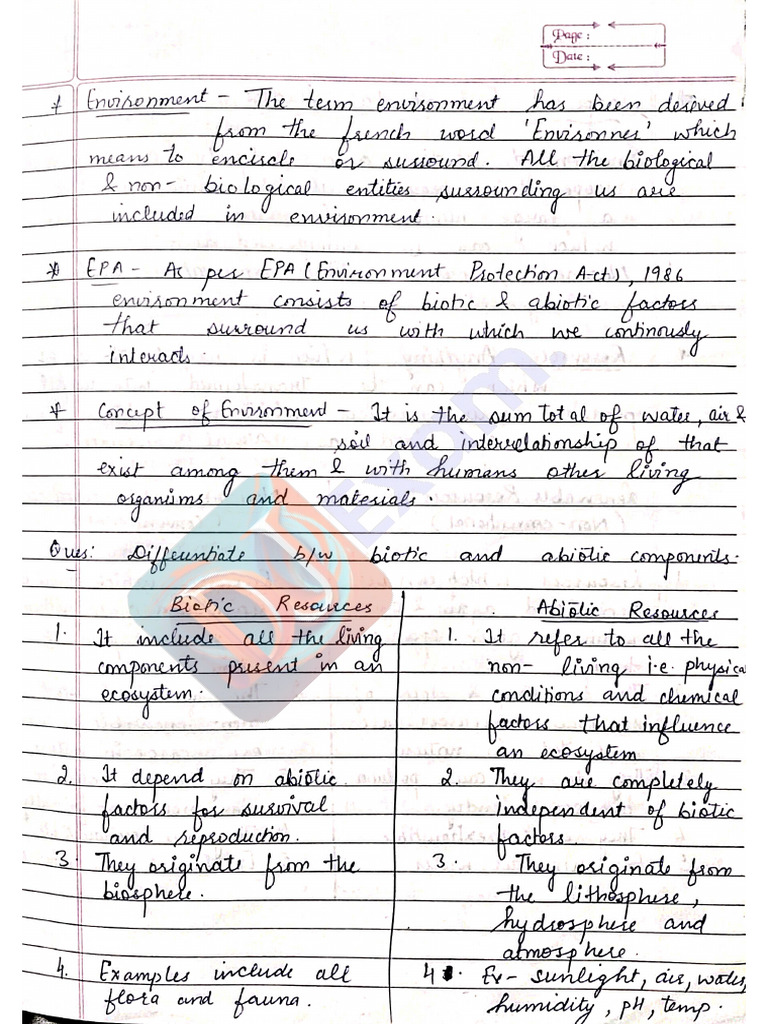 Page :
Date :
* Environment - The term environment has been derived
from the french word 'Environner' which
means to encircle or surround. All the biological
& non- biological entities surrounding us are
included in environment.
* EPA - As per EPA (Environment Protection Act), 1986
environment consists of biotic & abiotic factors
that surround us with which we continously
interacts
* Concept of Environment - It is the sum total of water, air &
soil and interrelationship of that
exist among them & with humans other living
organims and materials.
Ques: Differentiate b/w biotic and abiotic components.
Biotic Resources
1. It include all the living
components present in an
ecosystem.
2. It depend on abiotic
factors for survival
and reproduction.
3. They originate from the
biosphere.
4. Examples include all
flora and fauna.
Abiotic Resources
1. It refer to all the
non- living i.e. physical
conditions and chemical
factors that influence
an ecosystem
2. They are completely
independent of biotic
factors.
3. They originate from
the lithosphere,
hydrosphere and
atmosphere.
4. Ex- sunlight, air, water,
humidity, pH, temp.
DU Exam.